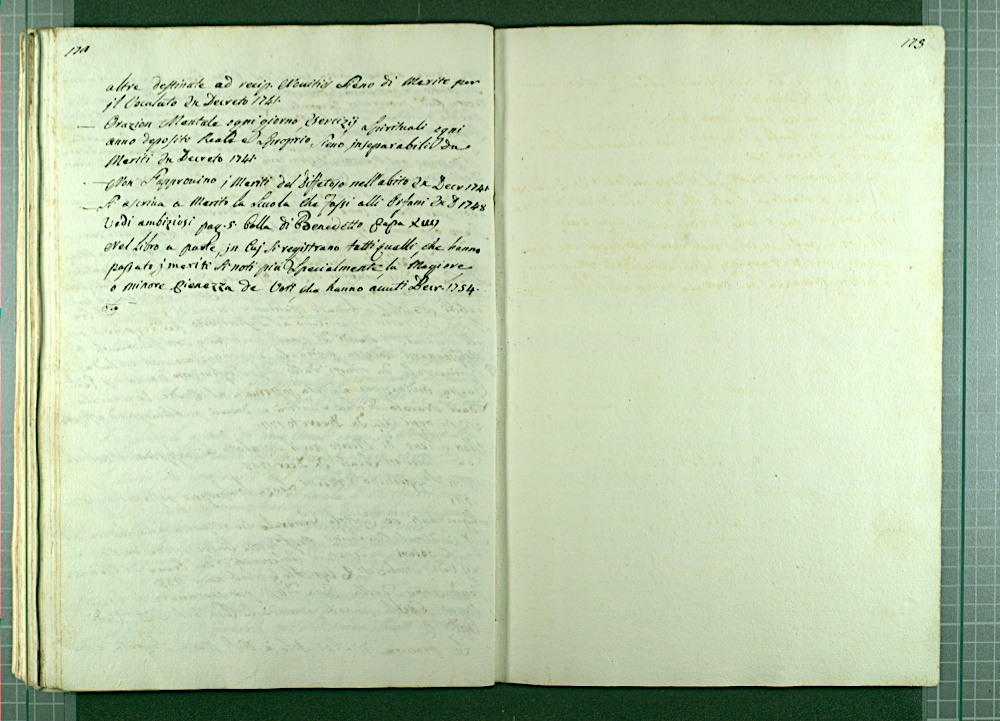 altre destinate ad recip. Novitios sieno di Merito per
jl Vocalato Dn Decreto 1741.
Orazion Mentale ogni giorno, Esercizij spirituali ogni
anno deposito Reale e sproprio sono inseparabili Da
Meriti Dn Decreto 1741.
Non s'approvino j Meriti del difettoso nell'abito Dn Decr 1741
Si ascriva a Merito la scuola che fassi alli Orfani Dn D 1748
Vedi ambiziosi pag. 5. bolla di Benedetto Papa
Nel Libro a parte, jn Cuj si registrano tutti quelli, che hanno
passato j meriti si noti più specialmente la Magiore
o minore Pienezza de Voti, che hanno avuti Decr. 1754.
173